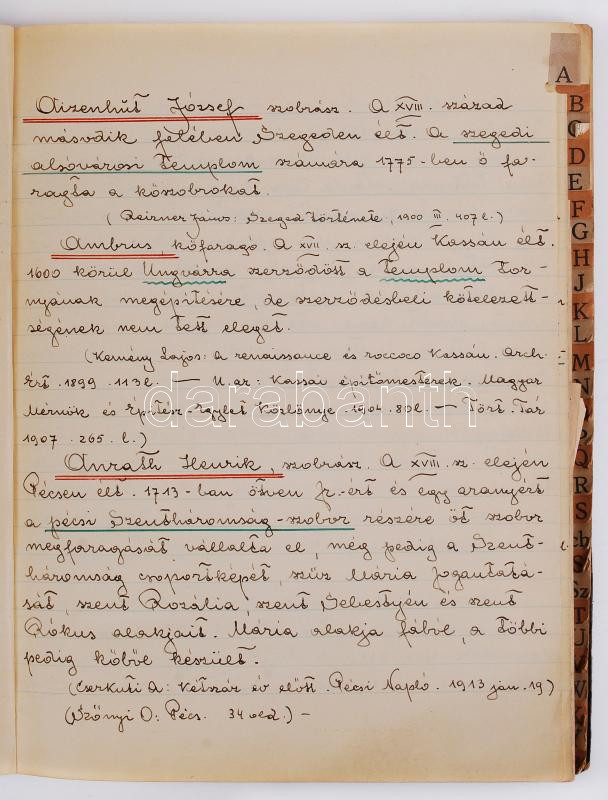 Aizenhut József szobrász. A XVIII. század
második felében Szegeden élt. A szegedi
alsóvárosi templom számára 1775-ben ő fa-
ragta a kőszobrokat.
(Reizner János: Szeged története, 1900 III. 407 l.)
Ambrus, kőfaragó. A XVII. sz. elején Kassán élt.
1600 körül Ungvárra szerződött a templom tor-
nyának megépítésére, de szerződésbeli kötelezett-
ségének nem tett eleget.
(Kemény Lajos: a renaissance és roccoco Kassán. Arch.
Ért. 1899. 113 l. — U.az: Kassai építőmesterek. Magyar
Mérnök és Építész-Egylet Közlönye. 1904. 80 l. — Tört. Tár
1907. 265. l.)
Anrath Henrik, szobrász. A XVIII. sz. elején
Pécsen élt. 1713-ban ötven fr.-ért és egy aranyért
a pécsi Szentháromság-szobor részére öt szobor
megfaragását vállalta el, még pedig a Szent-
háromság csoportképét, szűz Mária fogantatá-
sát, szent Rozália, szent Sebestyén és szent
Rókus alakjait. Mária alakja fából, a többi
pedig kőből készült.
(Cserkuti A: Kétszáz év előtt. Pécsi Napló. 1913 jan. 19)
(Szőnyi O: Pécs. 34 old.) –
A
B
C
D
E
F
G
H
J
K
L
M
N
Q
R
S
S
Sz
T
U
V
W
darabanth